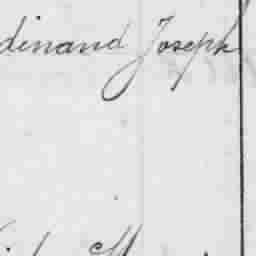 dinand Joseph